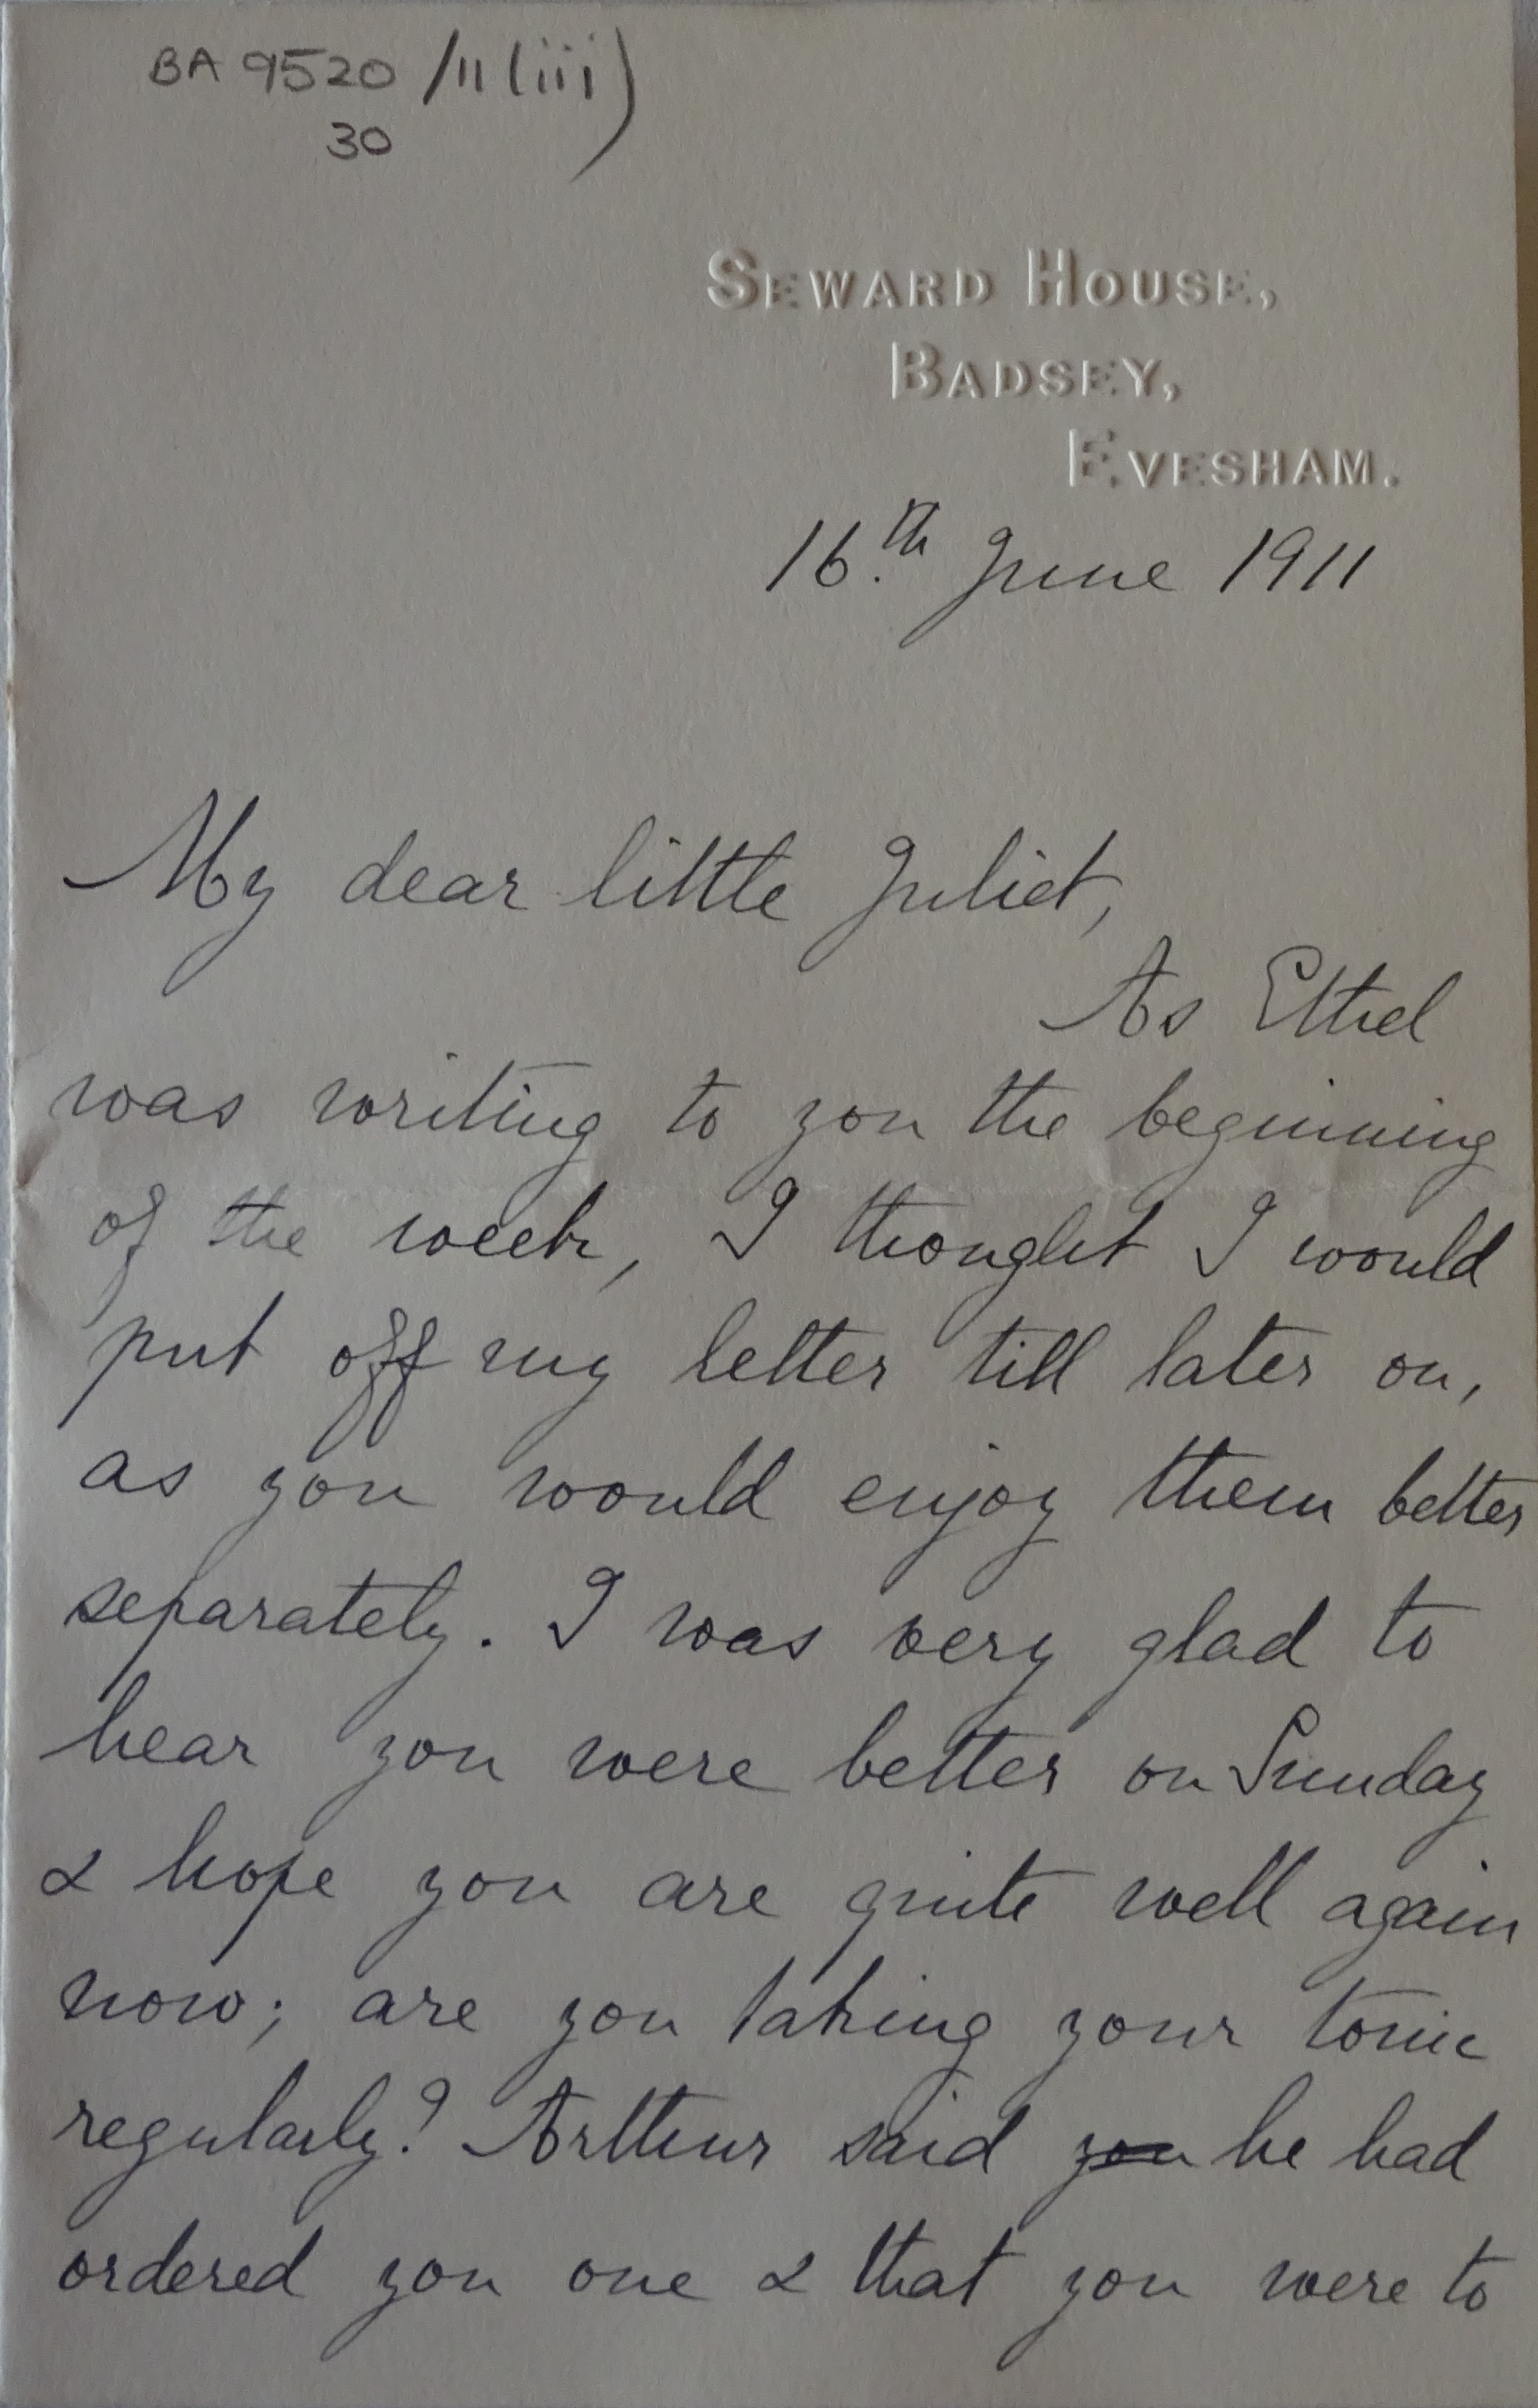 BA 9520/11(iii)
30
SEWARD HOUSE,
BADSEY,
EVESHAM.
16.th June 1911
My dear little Juliet,
As Ethel
was writing to you the beginning
of the week, I thought I would
put off my letter till later on,
as you would enjoy them better
separately. I was very glad to
hear you were better on Sunday
& hope you are quite well again
now; are you taking your tonic
regularly? Arthur said you he had
ordered you one & that you were to